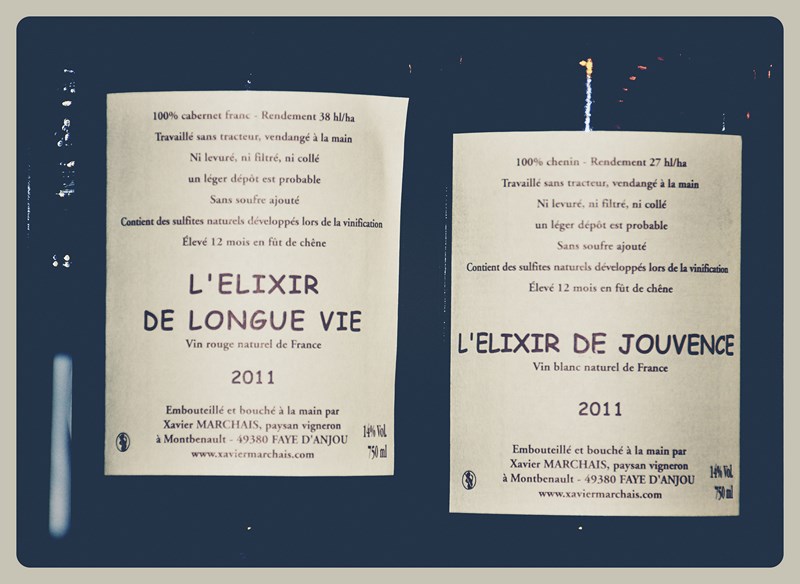 100% cabernet franc - Rendement 38 hl/ha
Travaillé sans tracteur, vendangé à la main
Ni levuré, ni filtré, ni collé
un léger dépôt est probable
Sans soufre ajouté
Contient des sulfites naturels développés lors de la vinification
Élevé 12 mois en fût de chêne
L'ELIXIR
DE LONGUE VIE
Vin rouge naturel de France
2011
Embouteillé et bouché à la main par
Xavier MARCHAIS, paysan vigneron
à Montbenault - 49380 FAYE D'ANJOU
www.xaviermarchais.com
14% Vol.
750 ml
100% chenin - Rendement 27 hl/ha
Travaillé sans tracteur, vendangé à la main
Ni levuré, ni filtré, ni collé
un léger dépôt est probable
Sans soufre ajouté
Contient des sulfites naturels développés lors de la vinification
Élevé 12 mois en fût de chêne
L'ELIXIR DE JOUVENCE
Vin blanc naturel de France
2011
Embouteillé et bouché à la main par
Xavier MARCHAIS, paysan vigneron
à Montbenault - 49380 FAYE D'ANJOU
www.xaviermarchais.com
14% Vol.
750 ml